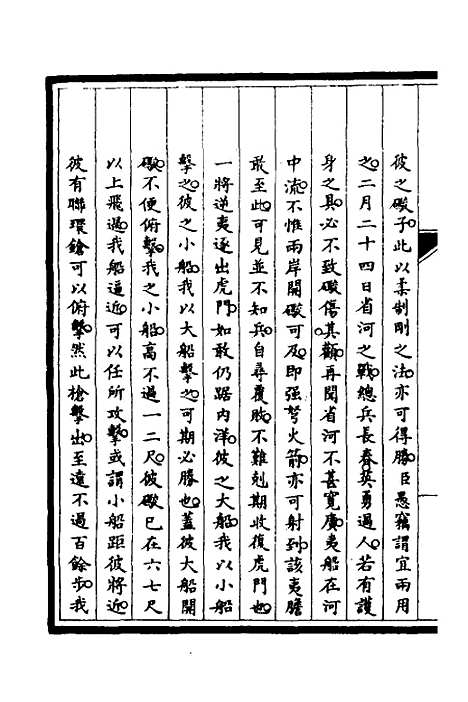 彼之礮子。此以柔制剛之法。亦可得勝。臣愚竊謂宜兩用
之。二月二十四日省河之戰。總兵長春英勇過人。若有護
身之具。必不致礮傷其顴。再聞省河不甚寬廣。夷船在河
中流。不惟兩岸開礮可及。即强弩火箭。亦可射到。該夷膽
敢至此。可見並不知兵。自尋覆敗。不難剋期收復虎門也。
一將逆夷逐出虎門。如敢仍踞內洋。彼之大船。我以小船
擊之。彼之小船。我以大船擊之。可期必勝也。蓋彼大船開
礮。不便俯擊。我之小船。高不過一二尺。彼礮已在六七尺
以上飛過。我船逼近。可以任所攻擊。或謂小船距彼將近。
彼有聯環鎗可以俯擊。然此槍擊出。至遠不過百餘步。我